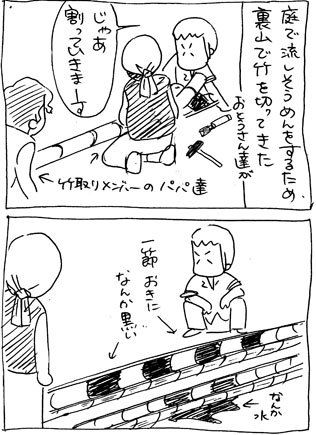 庭で流しそうめんをするため
裏山で竹を切ってきた
おとうさん達が
じゃあ
割っていきます
竹取りメンバーのパパ達
一節おきに
なんか黒い
なんか
水